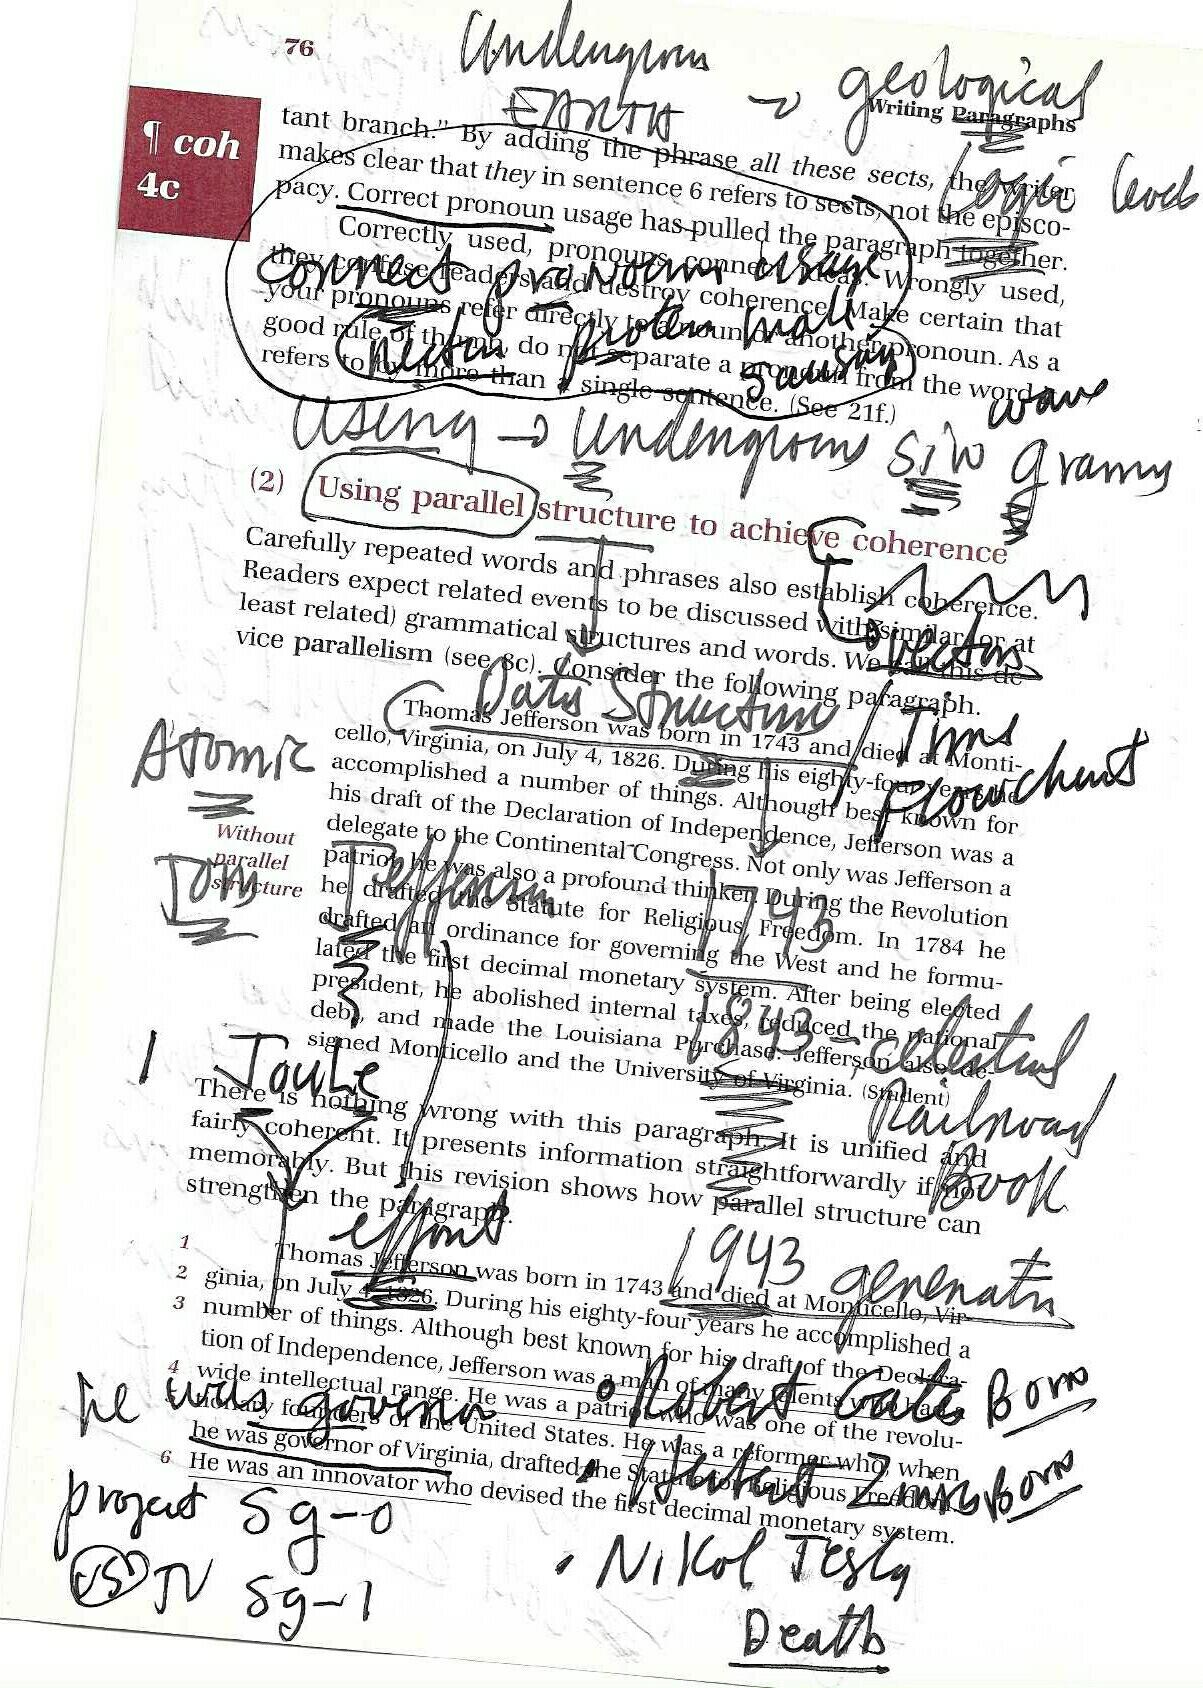 76
Undergroun
EARTH → geological
Writing Paragraphs
Logic levels
¶ coh
4c
tant branch." By adding the phrase all these sects, the writer
makes clear that they in sentence 6 refers to sects, not the episco-
pacy. Correct pronoun usage has pulled the paragraph together.
Correctly used, pronouns connect ideas. Wrongly used,
they confuse readers and destroy coherence. Make certain that
your pronouns refer directly to a noun or another pronoun. As a
good rule of thumb, do not separate a pronoun from the word it
refers to by more than a single sentence. (See 21f.)
connect pronouns usage
wave
Using → Undergrouns grams
(2) Using parallel structure to achieve coherence
Carefully repeated words and phrases also establish coherence.
Readers expect related events to be discussed with similar (or at
least related) grammatical structures and words. We call this de-
vice parallelism (see 8c). Consider the following paragraph.
Vector
Data Structure
Time
Flowchart
Atomic
Thomas Jefferson was born in 1743 and died at Monti-
cello, Virginia, on July 4, 1826. During his eighty-four years he
accomplished a number of things. Although best known for
his draft of the Declaration of Independence, Jefferson was a
delegate to the Continental Congress. Not only was Jefferson a
patriot, he was also a profound thinker. During the Revolution
he drafted the Statute for Religious Freedom. In 1784 he
drafted an ordinance for governing the West and he formu-
lated the first decimal monetary system. After being elected
president, he abolished internal taxes, reduced the national
debt, and made the Louisiana Purchase. Jefferson also de-
signed Monticello and the University of Virginia. (Student)
Without
parallel
structure
Tom Jefferson
1743
1843 - celestial
Railroad
Book
1 Joule
There is nothing wrong with this paragraph. It is unified and
fairly coherent. It presents information straightforwardly if not
memorably. But this revision shows how parallel structure can
strengthen the paragraph.
effort
1943
1 Thomas Jefferson was born in 1743 and died at Monticello, Vir-
2 ginia, on July 4, 1826. During his eighty-four years he accomplished a
3 number of things. Although best known for his draft of the Declara-
tion of Independence, Jefferson was a man of many talents who had a
4 wide intellectual range. He was a patriot who was one of the revolu-
tionary founders of the United States. He was a reformer who, when
he was governor of Virginia, drafted the Statute for Religious Freedom.
6 He was an innovator who devised the first decimal monetary system.
he was governor
• Robert Gates Born
• Herbert Zims Born
project Sg-0
• Nikol Tesla
TV Sg-1
Death